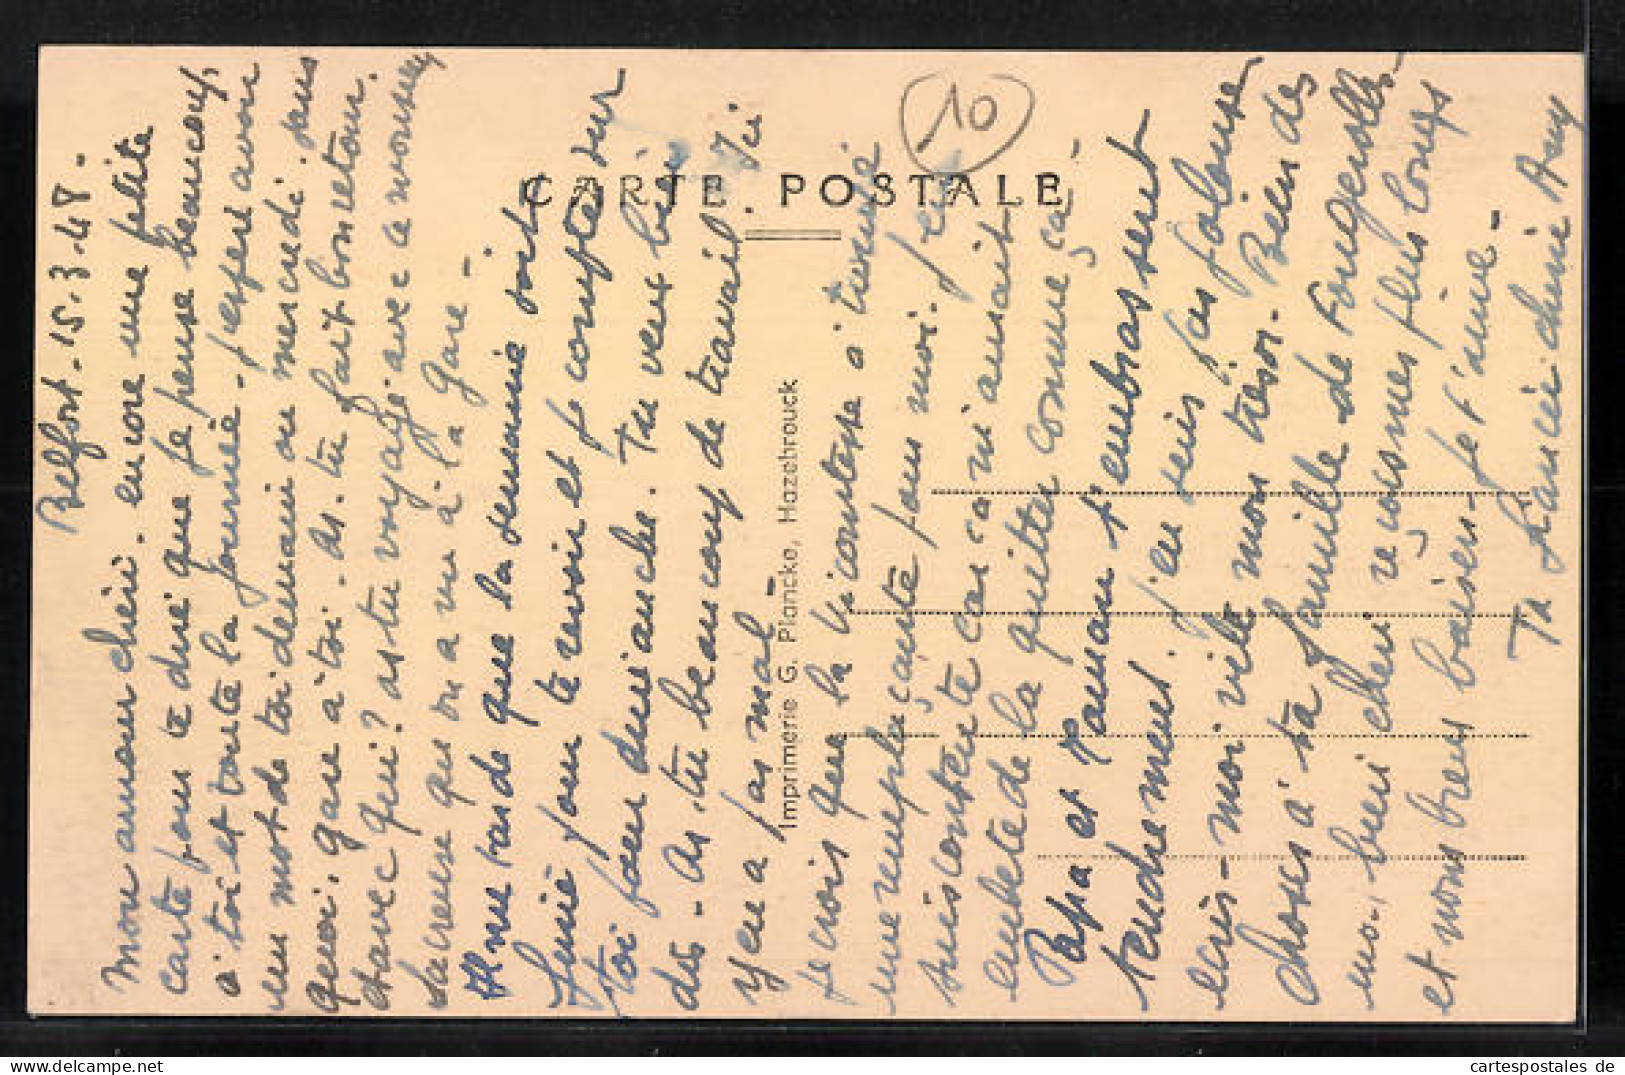 Belfort. 15.3.48.
Mon amour chéri. encore une petite
carte pour te dire que je pense beaucoup
à toi et toute la journée. j'espère avoir
un mot de toi demain ou mercredi sans
quoi. gare à toi. As-tu fait bon retour.
avec qui? as tu voyagé avec ce
que on a vu à la gare -
Il me tarde que la semaine soit
finie pour te revoir et je compte sur
toi pour dimanche. Tu veux bien
dis - As-tu beaucoup de travail. Ici
y en a pas mal -
je crois que la Vicontesse a trouvé
une remplaçante pour moi. je
suis contente car ça m'aurait
embêté de la quitter comme ça -
Papa et Maman t'embrassent
tendrement. j'en suis pas jalouse
écris-moi vite mon trésor. Bien des
choses à ta famille de Fougerolles -
moi, bien cher reçois mes plus longs
et nombreux baisers - Je t'aime -
Ta fiancée chérie
10
CARTE POSTALE
Imprimerie G. Plancke, Hazebrouck
cartespostales de